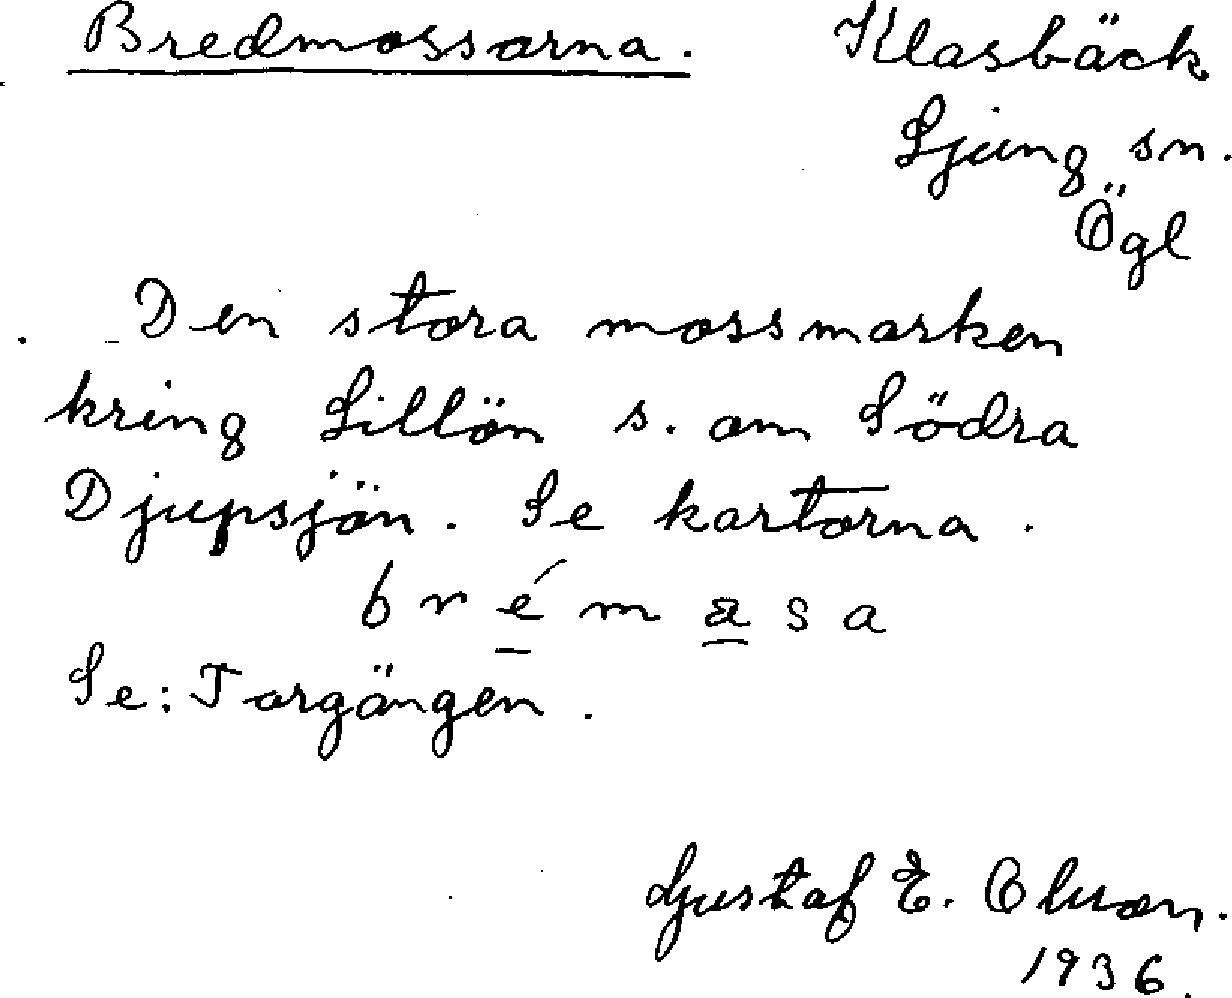 Bredmossarna. Klasbäck
Ljung sn.
Ögl
Den stora mossmarken
kring Lillön s. om Södra
Djupsjön. Se kartorna.
brémasa
Se: Torgängen.
Gustaf E. Olsson.
1936.